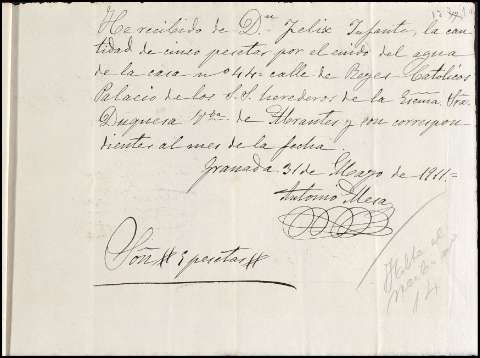 He recibido de Dn Felix Infante, la can-
tidad de cinco pesetas por el cuido del agua
de la casa nº 44 calle de Reyes Católicos
Palacio de los S.S. herederos de la Excma. Sra.
Duquesa Vda de Abrantes y son correspon-
dientes al mes de la fecha.
Granada 31 de Mayo de 1911.=
Antonio Mesa
Son # 5 pesetas #
14